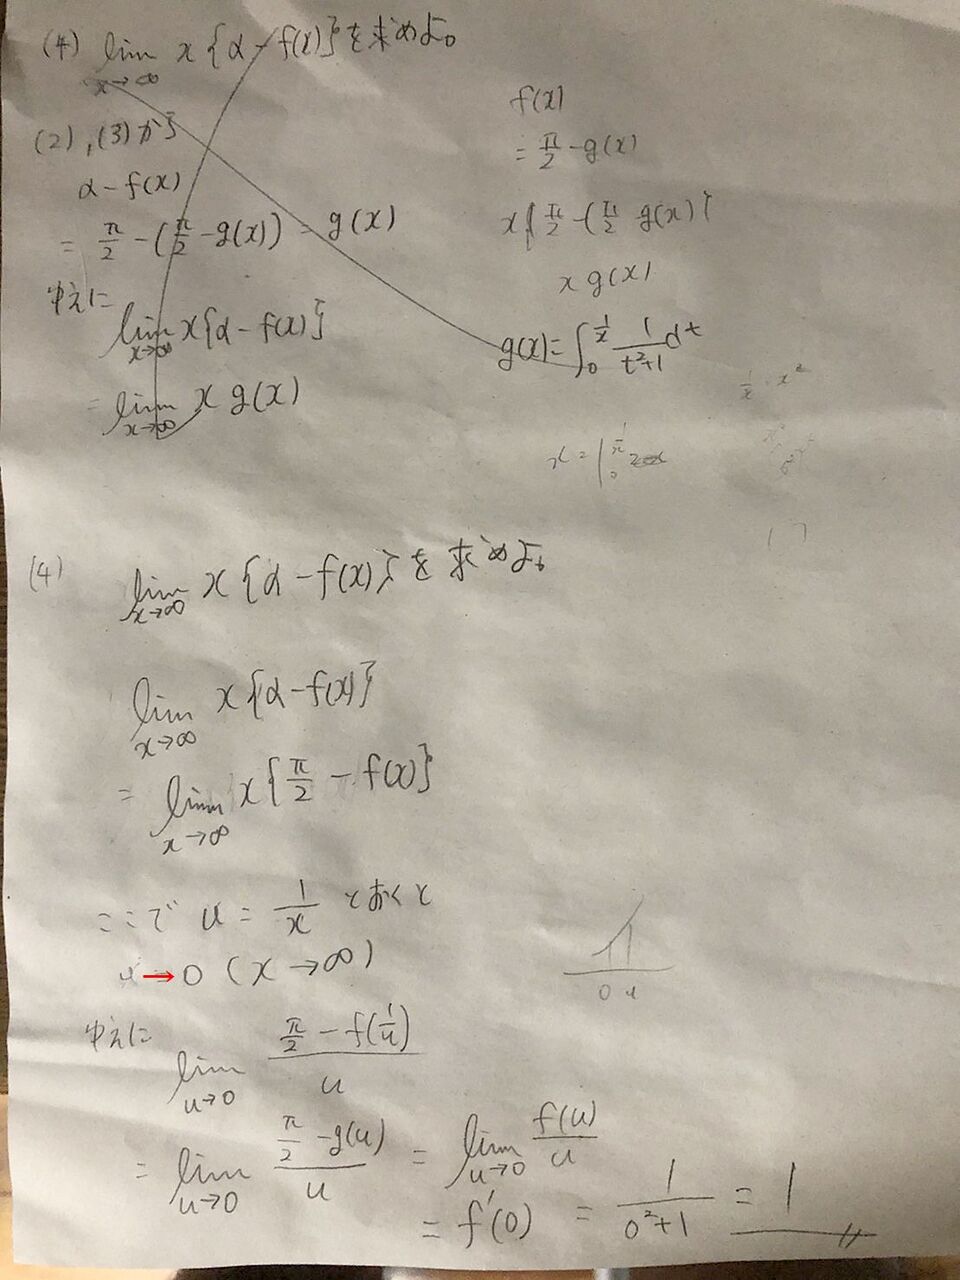 (4) lim x→∞ x{α-f(x)}を求めよ。
(2),(3)から
α-f(x)
= π/2-(π/2-g(x)) = g(x)
ゆえに
lim x→∞ x{α-f(x)}
= lim x→∞ x g(x)
f(x)
= π/2-g(x)
x{π/2-(π/2 g(x)}
x g(x)
g(x)=∫0 1/x 1/t²+1 dt
(4) lim x→∞ x{α-f(x)}を求めよ。
lim x→∞ x{α-f(x)}
= lim x→∞ x{π/2-f(x)}
ここで u = 1/x とおくと
u→0 (x→∞)
0 u
ゆえに lim u→0 π/2-f(1/u)/u
= lim u→0 π/2-g(u)/u = lim u→0 f(u)/u
= f'(0) = 1/0²+1 = 1